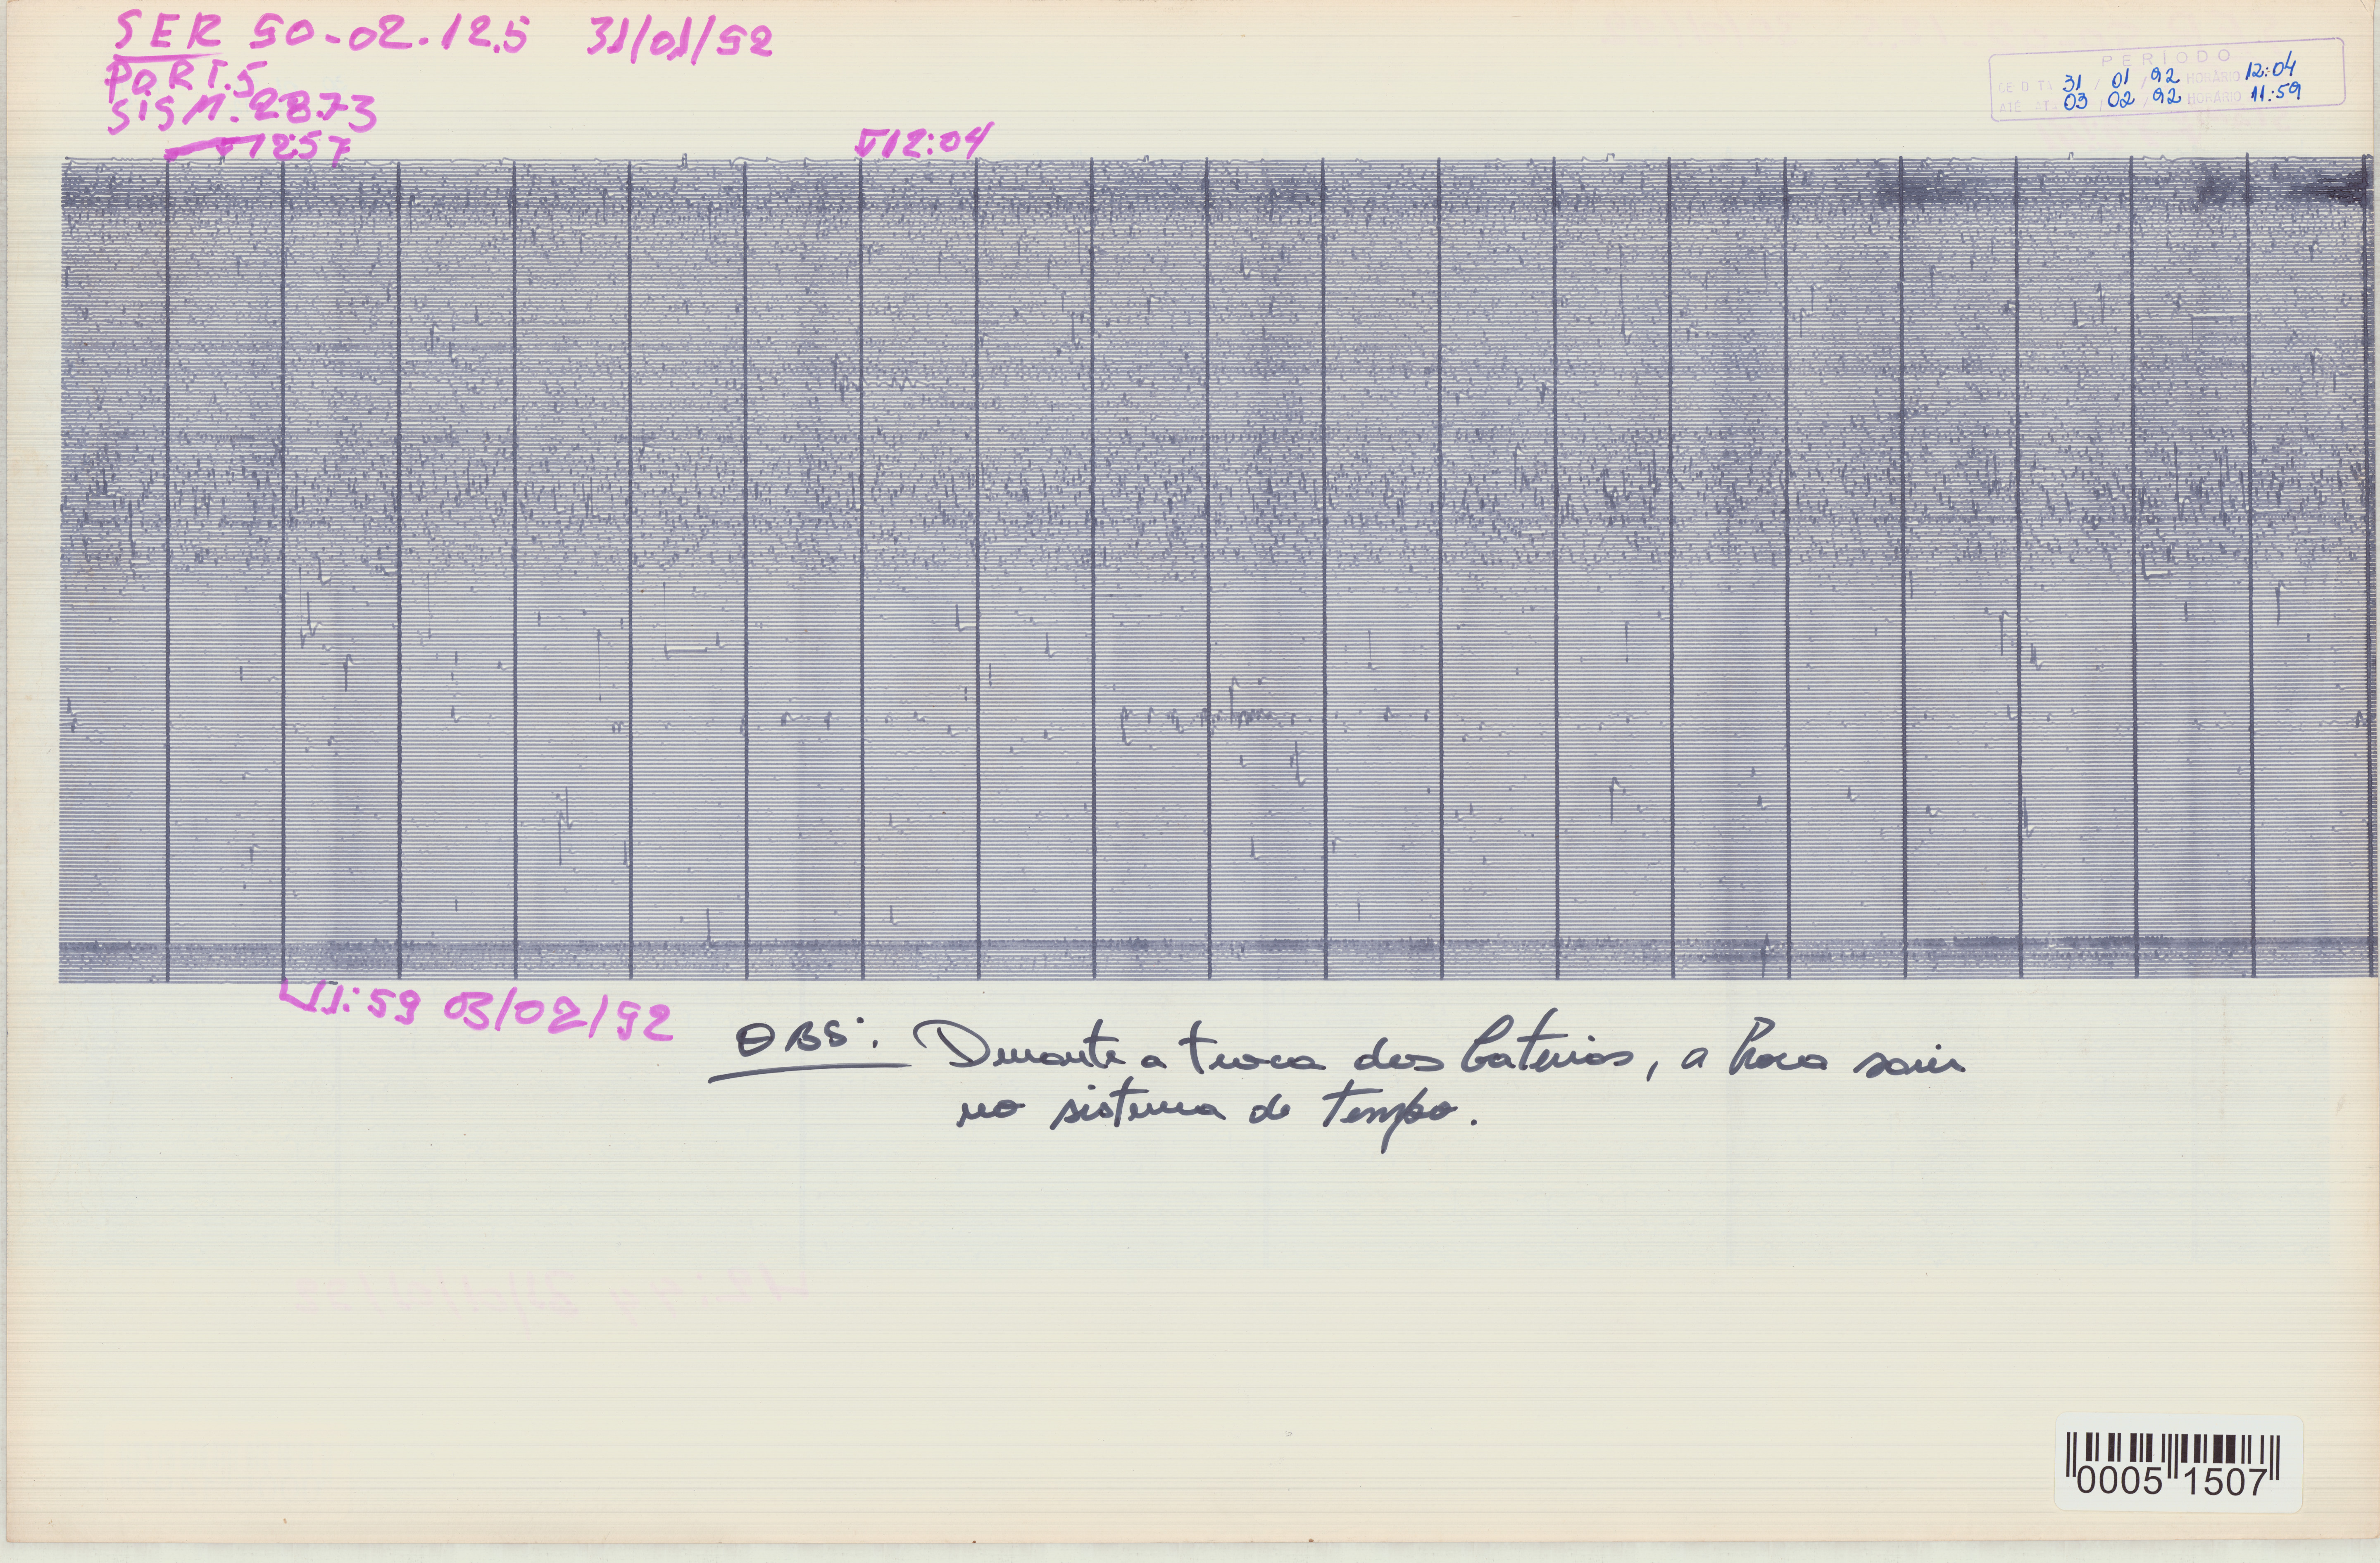 SER 50-02.12.5 31/01/92
PORT.5
SISM.2873
12:57
12:04
PERÍODO
DE DT: 31 / 01 / 92 HORÁRIO 12:04
ATÉ DT: 03 / 02 / 92 HORÁRIO 11:59
11:59 03/02/92
OBS: Durante a troca das baterias, a hora saiu
no sistema de tempo.
00051507